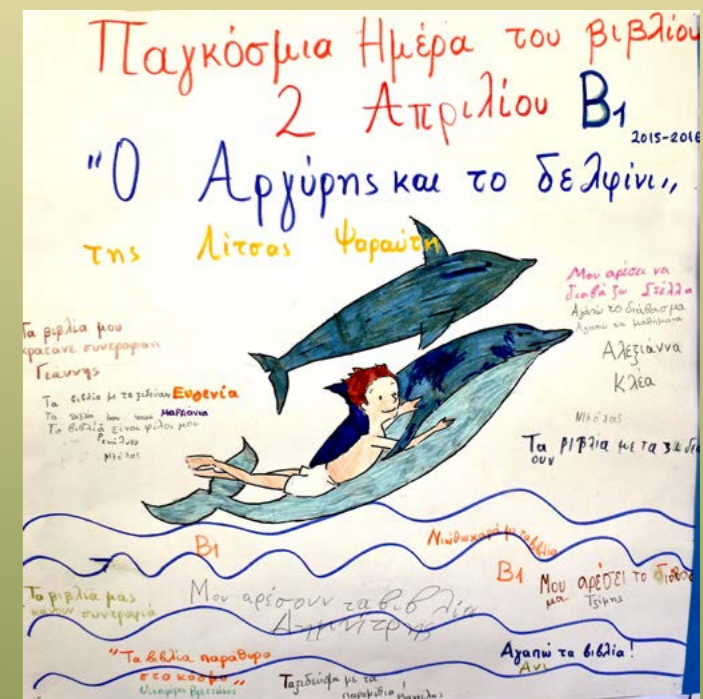 Παγκόσμια Ημέρα του βιβλίου
2 Απριλίου Β1
2015-2016
"Ο Αργύρης και το δελφίνι,,
της Λίτσας Ψαραύτη
Μου αρέσει να
διαβάζω Στέλλα
Αγαπώ το διάβασμα
Αγαπώ τα μαθήματα
Αλεξιάννα
Κλέα
Τα βιβλία μου
κρατάνε συντροφιά
Γιάννης
Τα βιβλία με ταξιδεύουν Ευγενία
Μαριάννα
Τα βιβλία είναι φίλοι μου
Νικόλας
Νικόλας
Τα βιβλία με ταξιδε
ουν
Β1
Νιώθω χαρά με τα βιβλία
Β1
Μου αρέσει το διάβασ
μα Τζίμης
Τα βιβλία μας
κάνουν συντροφιά
Μου αρέσουν τα βιβλία
Δημήτρης
"Τα βιβλία παράθυρο
στο κόσμο,,
Νικηφόρος Βρεττάκος
Ταξιδεύω με τα
παραμύθια!
Αγαπώ τα βιβλία!
Άνι